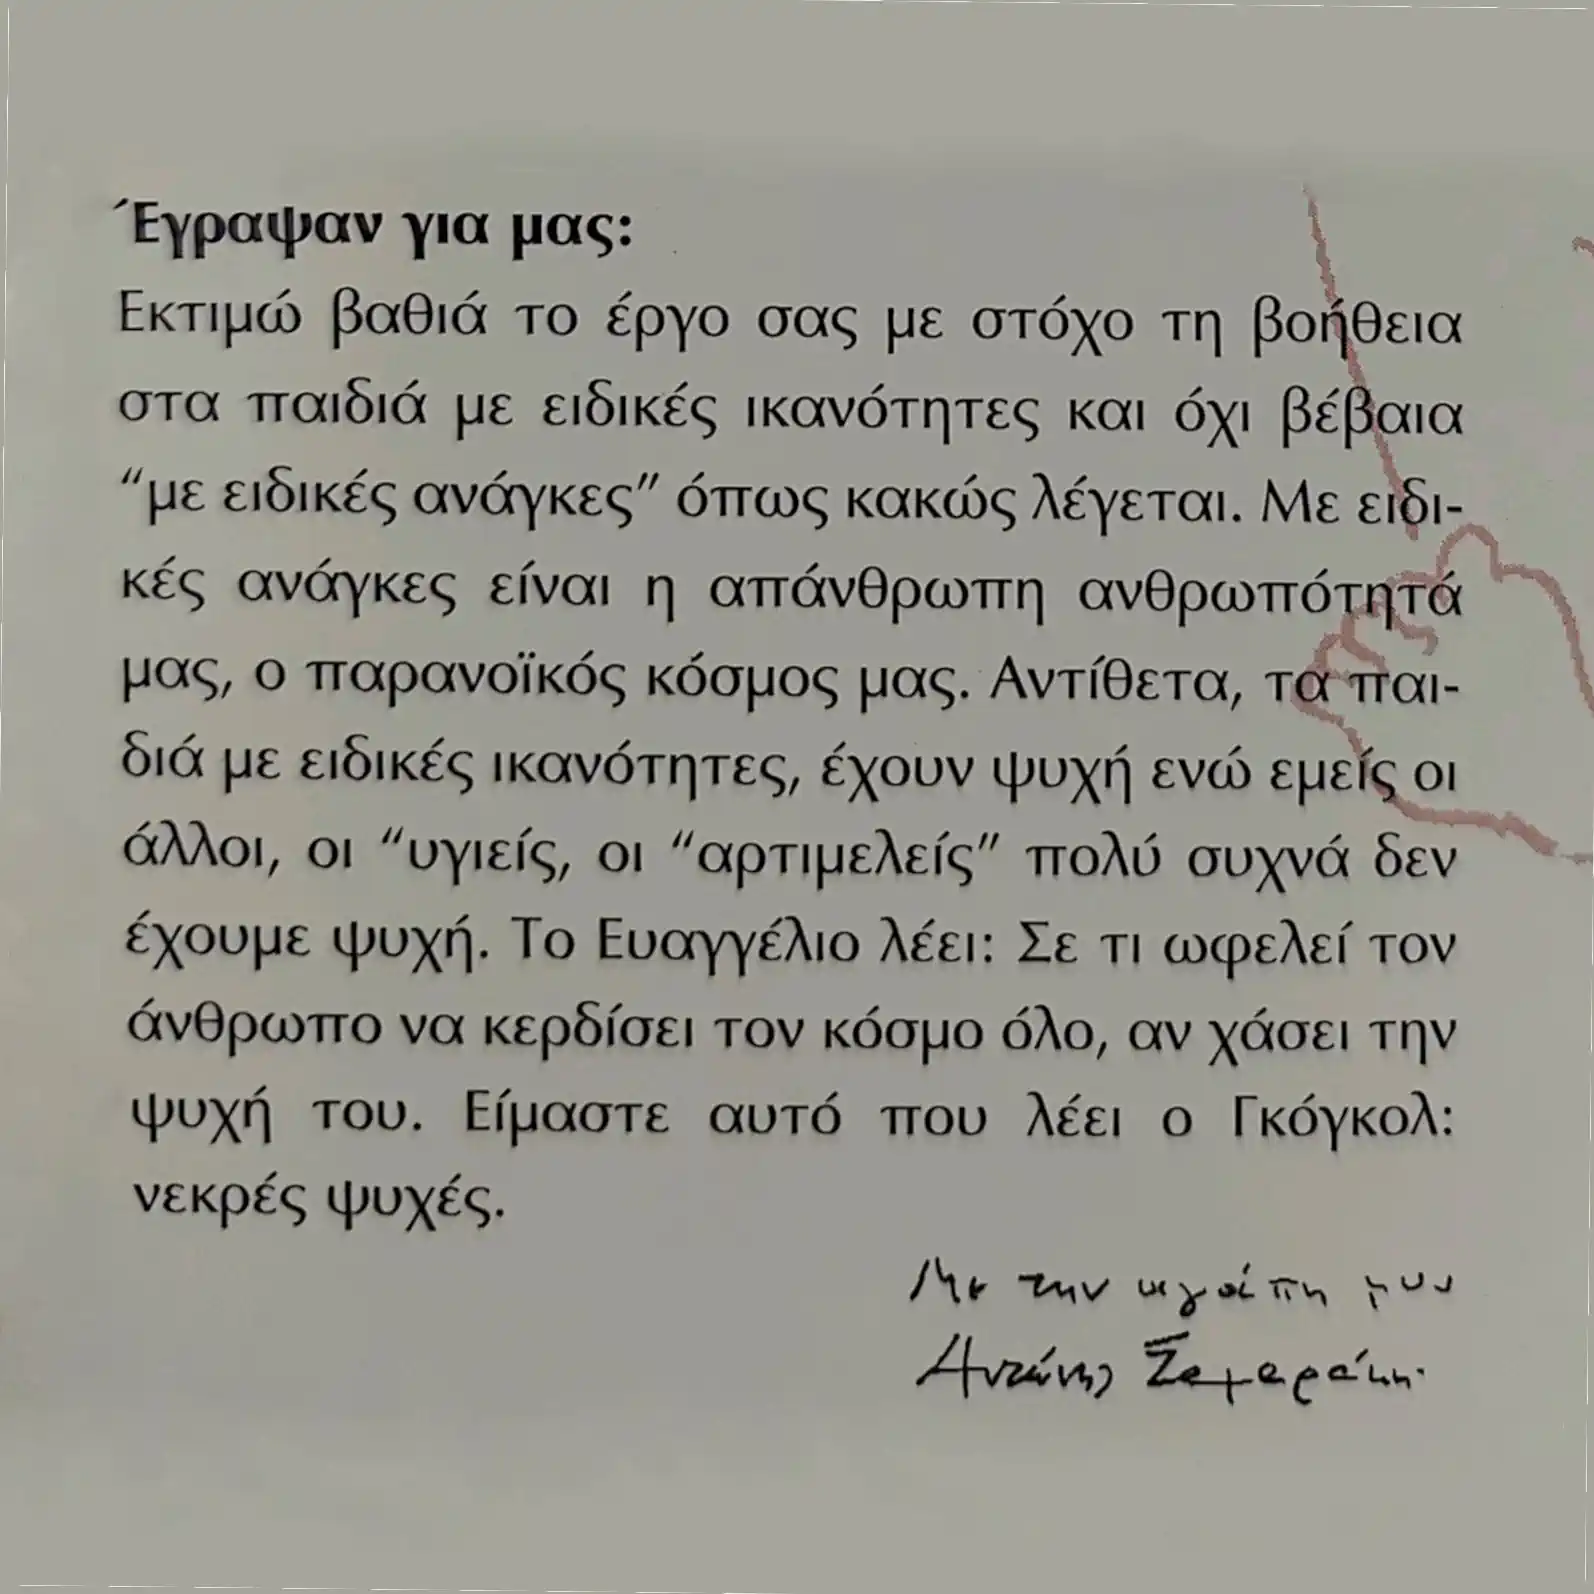 Έγραψαν για μας:
Εκτιμώ βαθιά το έργο σας με στόχο τη βοήθεια
στα παιδιά με ειδικές ικανότητες και όχι βέβαια
“με ειδικές ανάγκες” όπως κακώς λέγεται. Με ειδι-
κές ανάγκες είναι η απάνθρωπη ανθρωπότητά
μας, ο παρανοϊκός κόσμος μας. Αντίθετα, τα παι-
διά με ειδικές ικανότητες, έχουν ψυχή ενώ εμείς οι
άλλοι, οι “υγιείς, οι “αρτιμελείς” πολύ συχνά δεν
έχουμε ψυχή. Το Ευαγγέλιο λέει: Σε τι ωφελεί τον
άνθρωπο να κερδίσει τον κόσμο όλο, αν χάσει την
ψυχή του. Είμαστε αυτό που λέει ο Γκόγκολ:
νεκρές ψυχές.
Με την αγάπη μου
Αντώνης Σαμαράκης